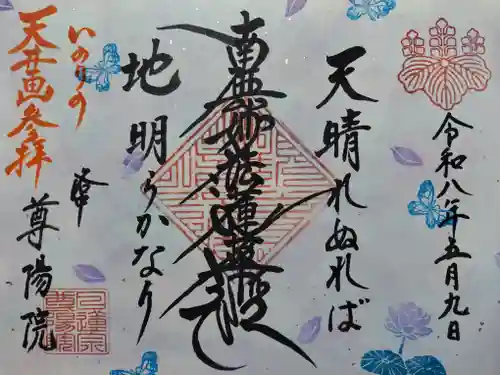 令和八年五月九日
天晴れぬれば
南無妙法蓮華経
地明らかなり
いのりの
天井画参拝
奉
尊陽院